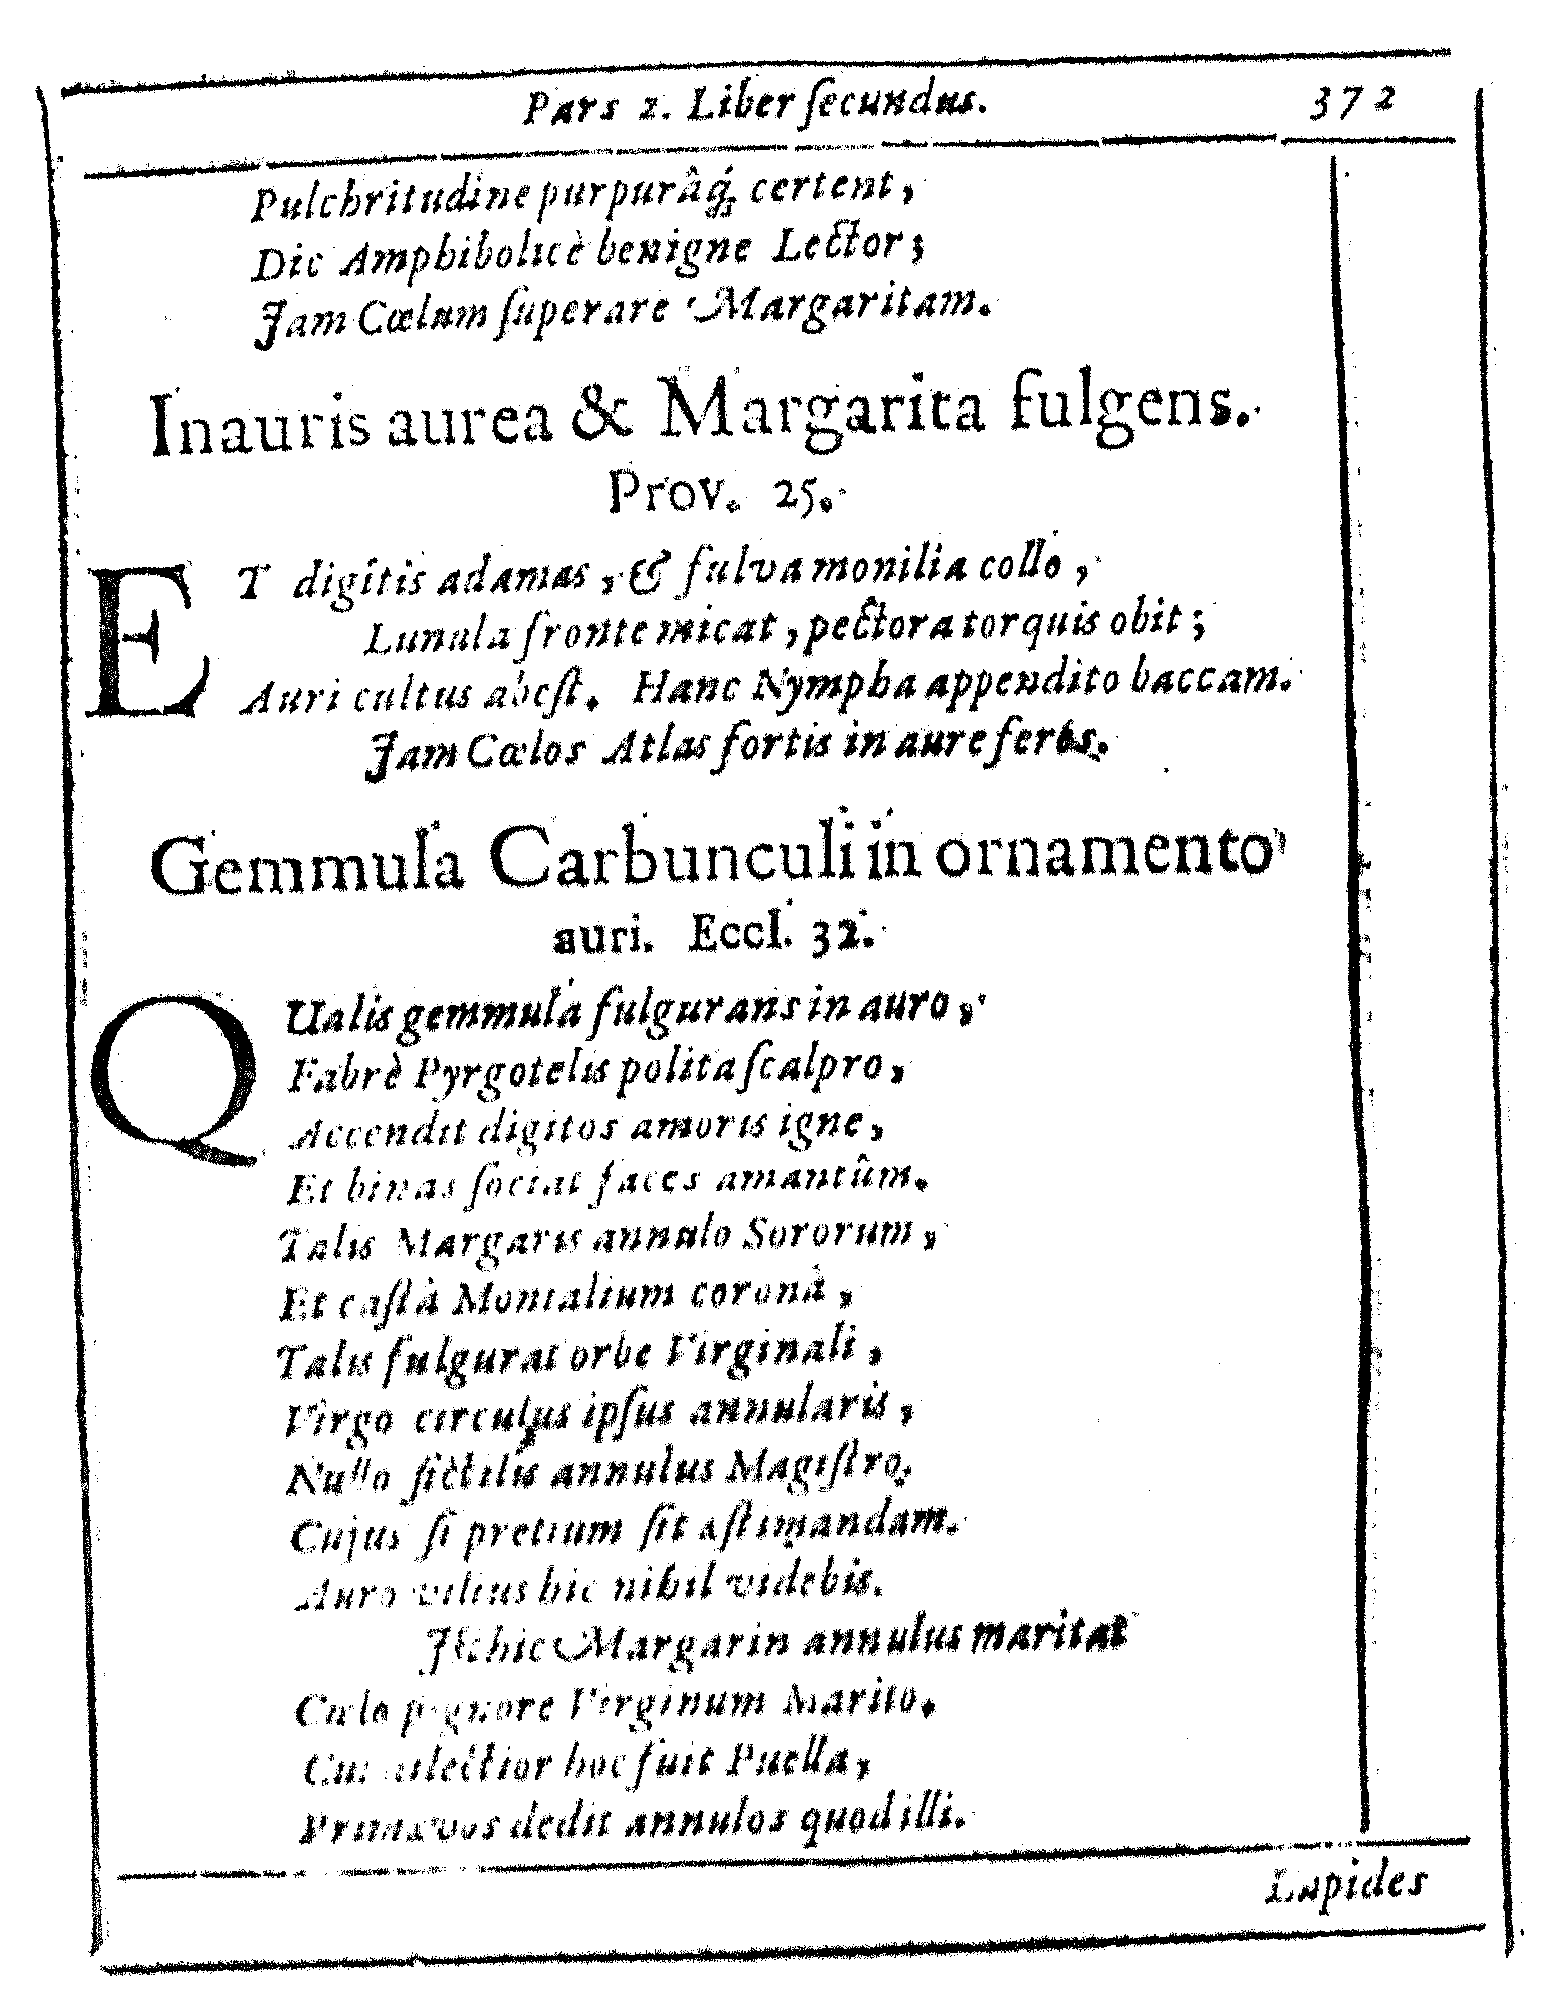 Pars 2. Liber ſecundus. 372
Pulchritudine purpurâq́; certent,
Dic Amphibolicè benigne Lector;
Jam Cœlum ſuperare Margaritam.
Inauris aurea & Margarita fulgens.
Prov. 25.
ET digitis adamas, & fulva monilia collo,
Lunula fronte micat, pectora torquis obit;
Auri cultus abeſt. Hanc Nympha appendito baccam.
Jam Cœlos Atlas fortis in aure feres.
Gemmula Carbunculi in ornamento
auri. Eccl. 32.
QUalis gemmula fulgurans in auro,
Fabrè Pyrgotelis polita ſcalpro,
Accendit digitos amoris igne,
Et binas ſociat faces amantûm.
Talis Margaris annulo Sororum,
Et caſtà Monialium coronâ,
Talis fulgurat orbe Virginali,
Virgo circulus ipſus annularis,
Nullo fictilis annulus Magiſtro.
Cujus ſi pretium ſit æſtimandam.
Auro vilius hic nihil videbis.
hic Margarin annulus maritat
Cœlo pignore Virginum Marito.
dilectior hoc fuit Puella,
Primævos dedit annulos quod illi.
Lapides